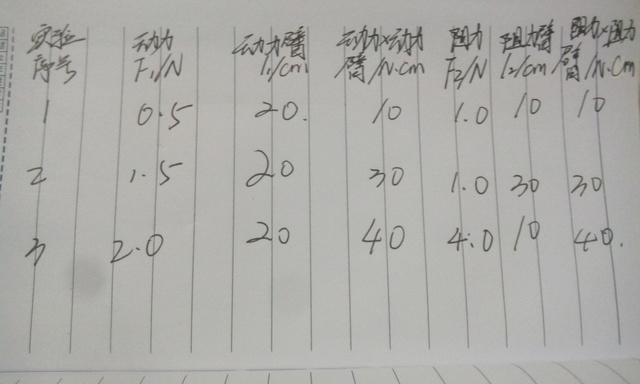 实验 动力 动力臂 动力×动力 阻力 阻力臂 阻力×阻力
序号 F₁/N l₁/cm 臂/N·cm F₂/N l₂/cm 臂/N·cm
1 0.5 20. 10 1.0 10 10
2 1.5 20 30 1.0 30 30
3 2.0 20 40 4.0 10 40.